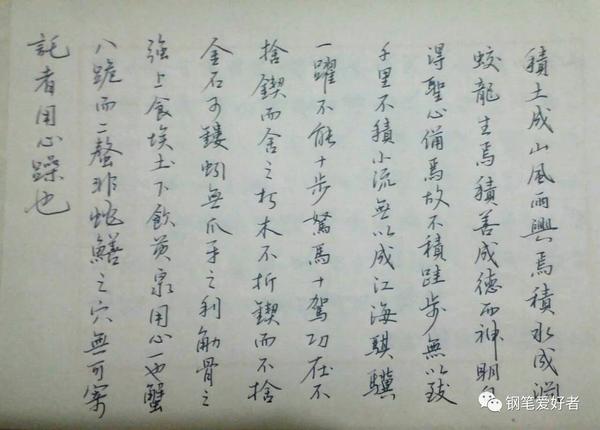 積土成山風雨興焉積水成淵
蛟龍生焉積善成德而神明自
得聖心備焉故不積跬步無以致
千里不積小流無以成江海騏驥
一躍不能十步駑馬十駕功在不
捨鍥而舍之朽木不折鍥而不捨
金石可鏤蚓無爪牙之利觔骨之
強上食埃土下飲黃泉用心一也蟹
八跪而二螯非蛇鱔之穴無可寄
託者用心躁也
钢笔爱好者